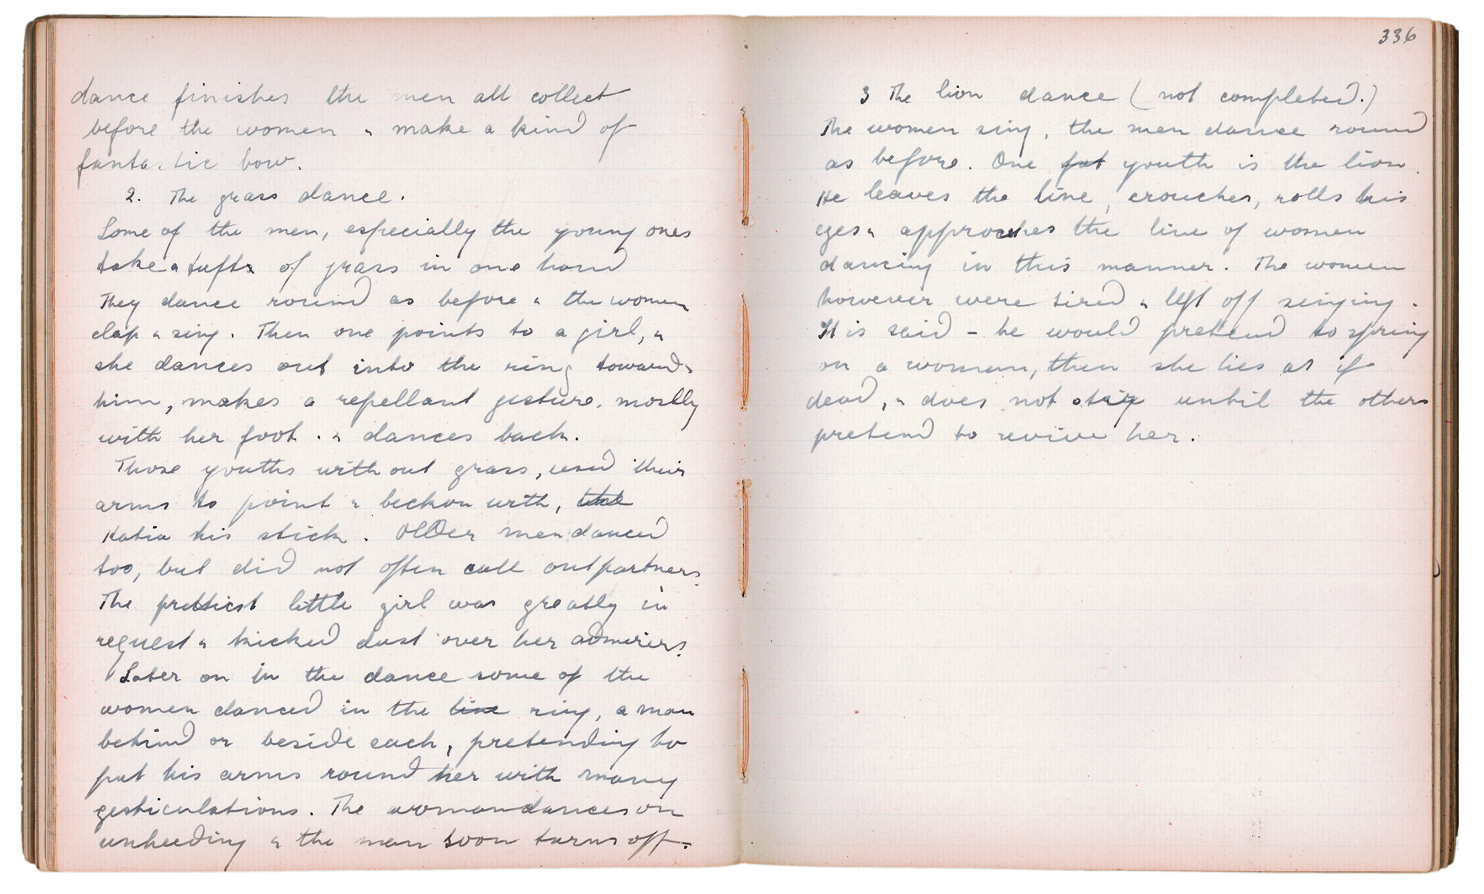 dance finishes the men all collect
before the women & make a kind of
fantastic bow.
2. The grass dance.
Some of the men, especially the young ones
take a tufts of grass in one hand
They dance round as before & the women
clap & sing. Then one points to a girl, &
she dances out into the ring towards
him, makes a repellant gesture, mostly
with her foot. & dances back.
Those youths without grass, used their
arms to point & beckon with,
Katia his stick. Older men danced
too, but did not often call out partners.
The prettiest little girl was greatly in
request & kicked dust over her admirers.
Later on in the dance some of the
women danced in the line ring, a man
behind or beside each, pretending to
put his arms round her with many
gesticulations. The woman dances on
unheeding & the man soon turns off.
336
3 The lion dance (not completed.)
The women sing, the men dance round
as before. One fat youth is the lion.
He leaves the line, crouches, rolls his
eyes & approaches the line of women
dancing in this manner. The women
however were tired & left off singing.
It is said - he would pretend to spring
on a woman, then she lies as if
dead, & does not stir until the others
pretend to revive her.